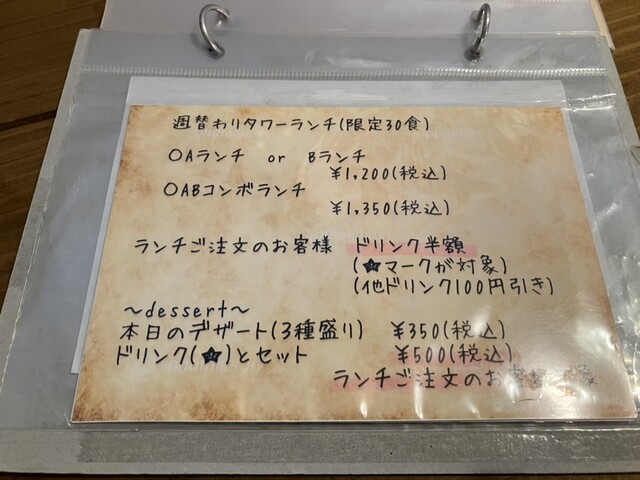 週替わりタワーランチ(限定30食)
○Aランチ or Bランチ
¥1,200(税込)
○ABコンボランチ
¥1,350(税込)
ランチご注文のお客様 ドリンク半額
(★マークが対象)
(他ドリンク100円引き)
～dessert～
本日のデザート(3種盛り) ¥350(税込)
ドリンク(★)とセット ¥500(税込)
ランチご注文のお客様